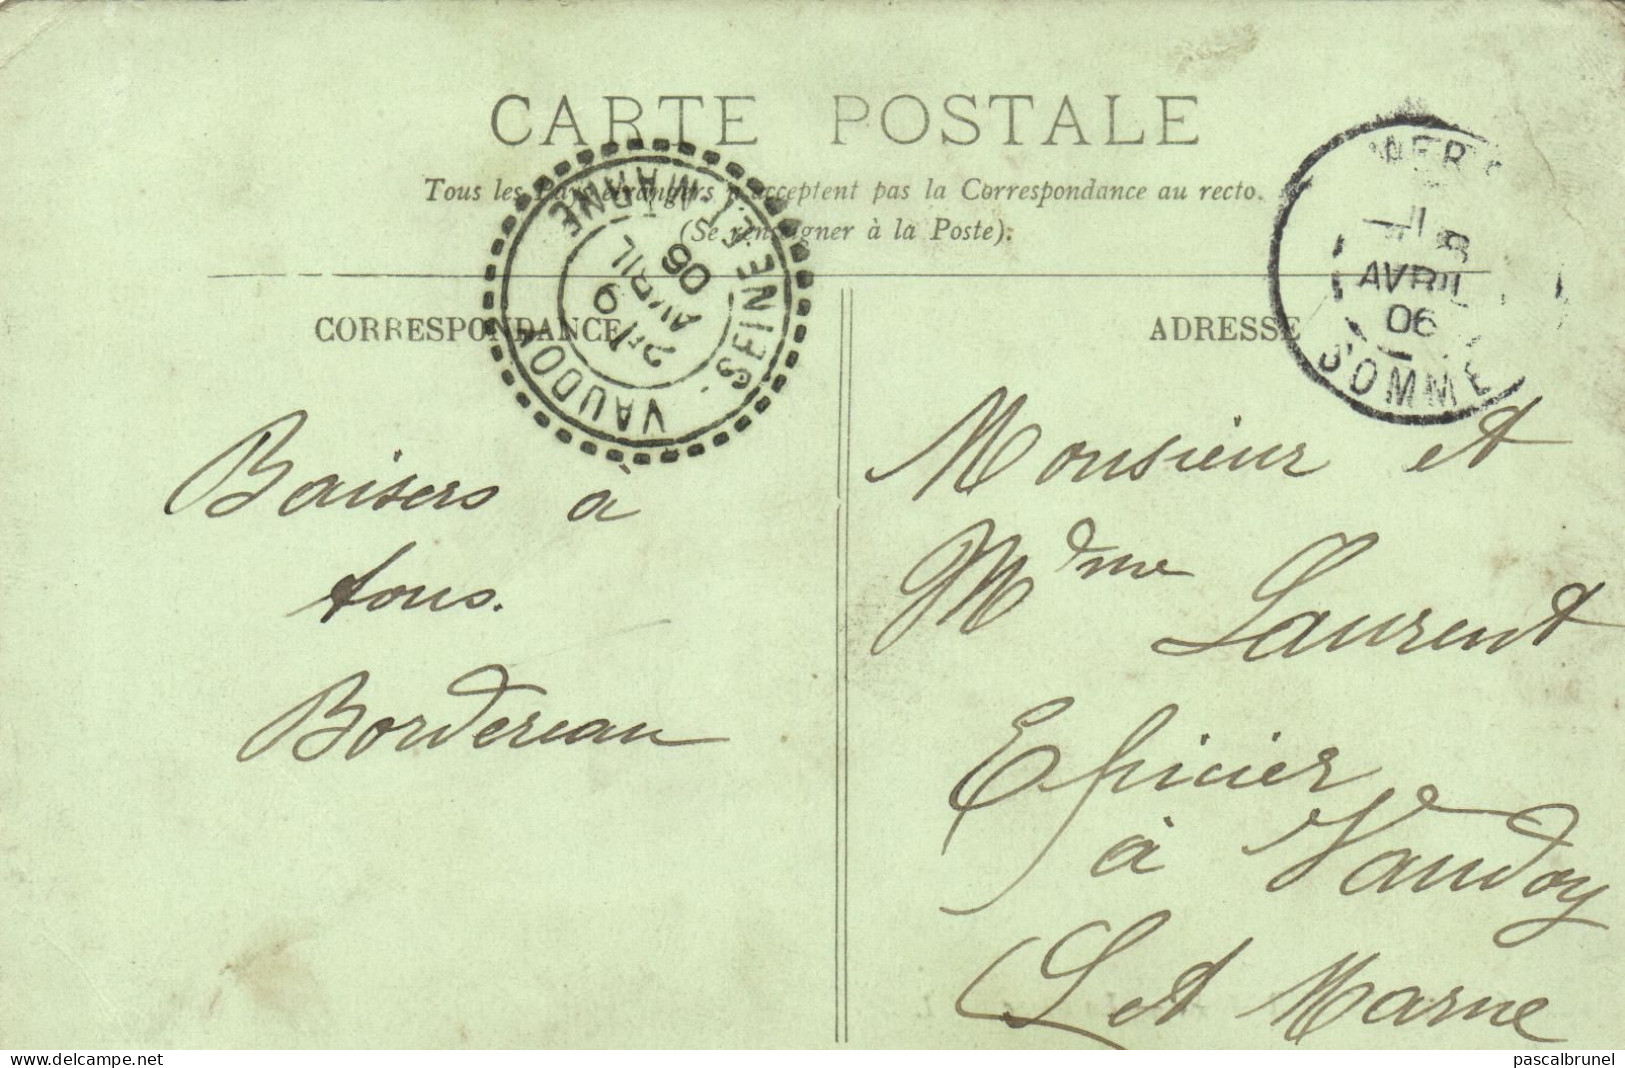 CARTE POSTALE
Tous les Pays étrangers n'acceptent pas la Correspondance au recto.
(Se renseigner à la Poste).
CORRESPONDANCE
ADRESSE
VAUDOY
SEINE-ET-MARNE
9
AVRIL
06
MERS
8
AVRIL
06
SOMME
Baisers à
tous.
Bordereau
Monsieur et
Mdme Laurent
Epicier
à Vaudoy
S et Marne
www.delcampe.net
pascalbrunel